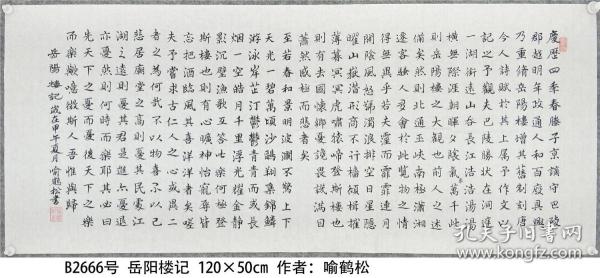 慶曆四年春滕子京謫守巴陵
郡越明年政通人和百廢具興
乃重脩岳陽樓增其舊制刻唐
今人詩賦於其上屬予作文以
記之予觀夫巴陵勝狀在洞庭
一湖銜遠山吞長江浩浩湯湯
橫無際涯朝暉夕陰氣象萬千此
則岳陽樓之大觀也前人之述
備矣然則北通巫峽南極瀟湘
遷客騷人多會於此覽物之情
得無異乎若夫霪雨霏霏連月
開陰風怒號濁浪排空日星隱
曜山岳潛形商旅不行檣傾楫摧
薄暮冥冥虎嘯猿啼登斯樓也
則有去國懷鄉憂讒畏譏滿目
蕭然感極而悲者矣
至若春和景明波瀾不驚上下
天光一碧萬頃沙鷗翔集錦鱗
游泳岸芷汀蘭鬱鬱青青而或長
煙一空皓月千里浮光耀金靜
影沉璧漁歌互答此樂何極登
斯樓也則有心曠神怡寵辱皆
忘把酒臨風其喜洋洋者矣嗟
夫予嘗求古仁人之心或異二
者之為何哉不以物喜不以己
悲居廟堂之高則憂其民處江
湖之遠則憂其君是進亦憂退
亦憂然則何時而樂耶其必曰
先天下之憂而憂後天下之樂
而樂歟噫微斯人吾誰與歸
岳陽樓記 歲在甲午夏月 喻鶴松書
B2666号 岳阳楼记 120×50cm 作者：喻鹤松